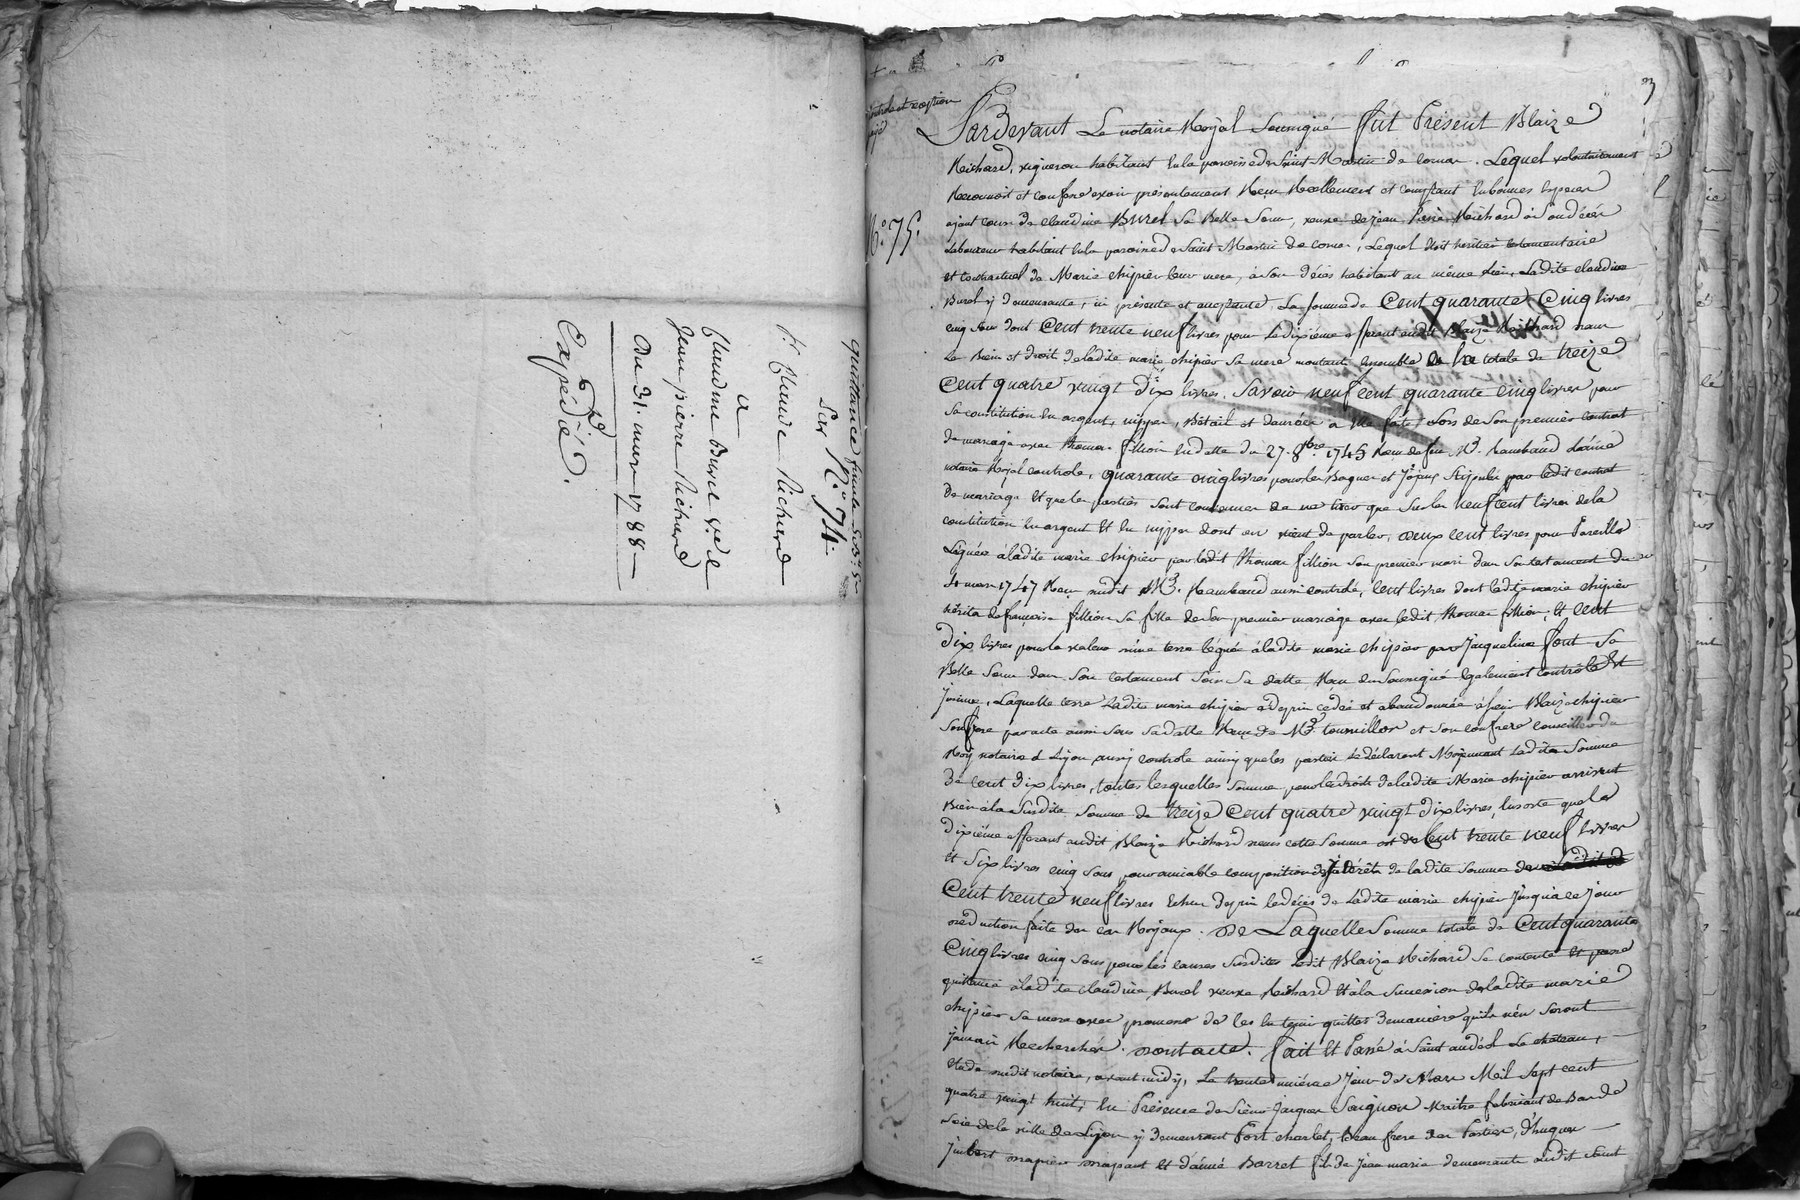 quittance finale de 145# 5s
Sur N.° 74.
p.r Claude Richard
a
Claudine Burel v.ve de
Jean pierre Richard
Du 31. mars 1788
Expédié.
controle et
N.° 75.
3
Pardevant Le notaire Royal Soussigné fut Présent Blaize
Richard, vigneron habitant en la paroisse de Saint Martin de cornas. Lequel volontairement
Reconnoit et confesse avoir présentement Reçu Réellement et comptant en bonnes Especes
ajant cours de claudine Burel Sa Belle Sœur, veuve de jean Pierre Richard à Son décès
Laboureur habitant en la paroisse de Saint Martin de cornas, Lequel étoit heritier testamentaire
et contractuel de Marie chipier leur mere, à Son décès habitant au même Lieu, Ladite claudine
Burel y demeurante, ici présente et acceptante La somme de Cent quarante Cinq livres
cinq Sous dont Cent trente neuf livres pour Le dixième afferant audit Blaize Richard
Le Bien et droit de ladite marie chipier Sa mere montant ensemble totale de treize
Cent quatre vingt Dix livres, Savoir neuf cent quarante cinq livres pour
Sa constitution en argent, nippes, Bétail et denrées a Elle faite Lors de Son premier contrat
de mariage avec thomas fillion en datte du 27. 8bre 1745 Reçu de feu M.e Rambaud L'ainé
notaire Royal controlé, quarante cinq livres pour les Bagues et Joyaux Stipulés par ledit contrat
De mariage Et que les parties Sont convenues de ne tirer que Sur les neuf cent livres de la
constitution en argent Et en nippes dont on vient de parler, deux cent livres pour Pareille
Léguées à ladite marie chipier par ledit thomas fillion Son premier mari dans Son testament du
4 mars 1747 Reçu mudit M.e Rambaud aussi controlé, Cent livres dont ladite marie chipier
hérita de françoise fillion Sa fille de Son premier mariage avec ledit thomas fillion, Et Cent
Dix livres pour la valeur d'une terre léguée à ladite marie chipier par Jacqueline font Sa
Belle Sœur dans Son testament Sous Sa datte Reçu du Soussigné Egalement controlé Et
Jnsinué, Laquelle terre Ladite marie chipier a depuis cédée et abandonnée à feu Blaize chipier
Son frere par acte aussi Sous Sa datte Reçu de M.e tournillon et Son confrere conseillers du
Roy notaires à Lyon aussi controlé ainsi que les parties Le déclarent Moyennant Ladite Somme
De Cent Dix livres, toutes lesquelles Sommes pour les droits de ladite Marie chipier arrivent
Bien à la Susdite Somme de treize Cent quatre vingt Dix livres, En sorte que Le
dixième afferant audit Blaize Richard en cette Somme est de Cent trente neuf livres
Et Six livres cinq Sous pour amiable composition des Jnterêts de ladite Somme de
Cent trente neuf livres Echus depuis le décès de Ladite marie chipier Jusqu'à ce Jour
déduction faite des cas Royaux. De Laquelle Somme totale de Cent quarante
Cinq livres cinq Sous pour les causes Susdites Ledit Blaize Richard Se contente Et passe
quittance à ladite claudine Burel veuve Richard Et à la Succession de ladite marie
chipier Sa mere avec promesse de les en tenir quittes De maniere qu'ils n'en Seront
Jamais Recherchés. Dont acte. fait Et Passé à Saint andéol Le chateau,
Etude mudit notaire, avant midy, Le trente unième Jour de Mars Mil Sept cent
quatre vingt huit; En Présence de Sieur Jacques Saignon Maitre fabricant de Bas de
Soie de la ville de Lyon y demeurant Port charlet, Beau frere des Parties, d'hugues
Jmbert et d'aimé Barret fils de jean marie demeurants audit Saint